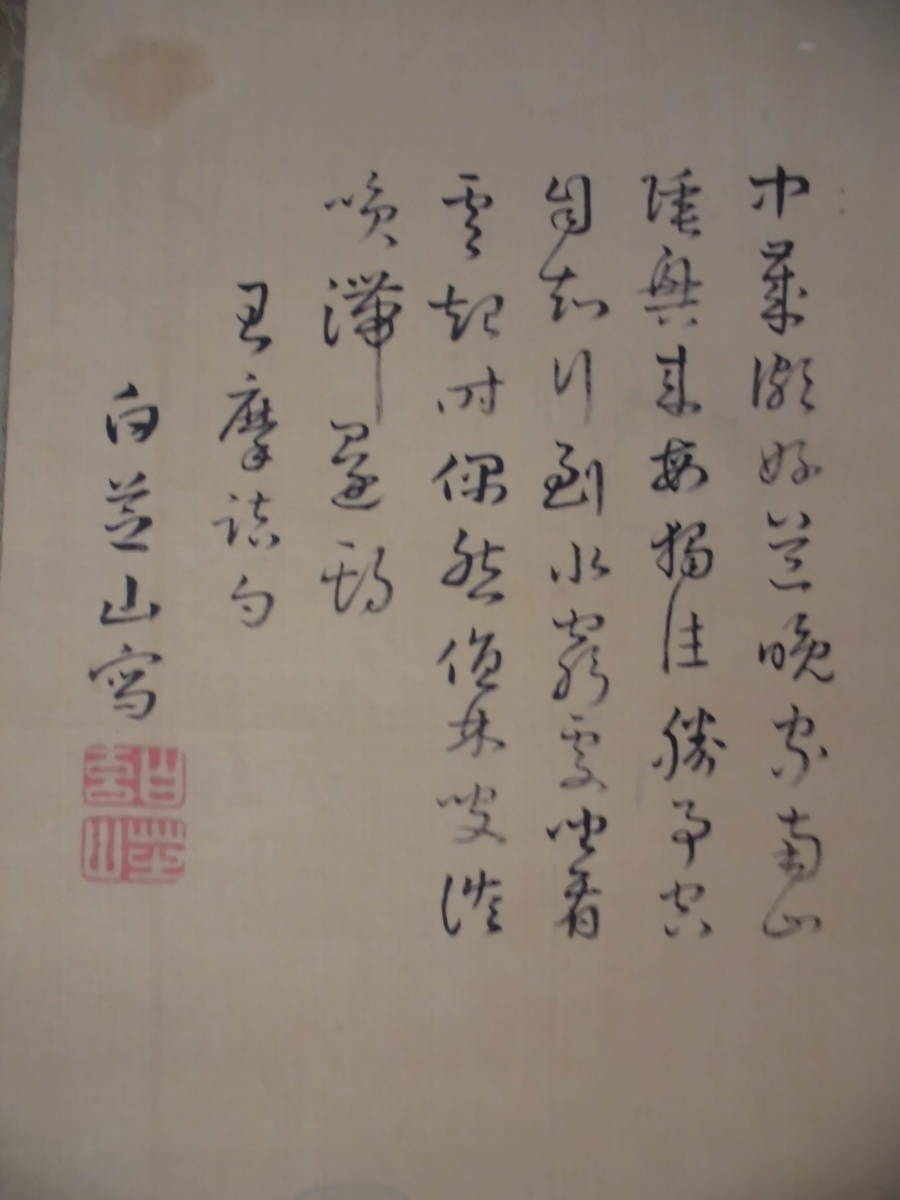 中歲頗好道晚家南山
陲興來每獨往勝事空
自知行到水窮處坐看
雲起時偶然值林叟談
咲滯還期
摩詰句
白芝山寫